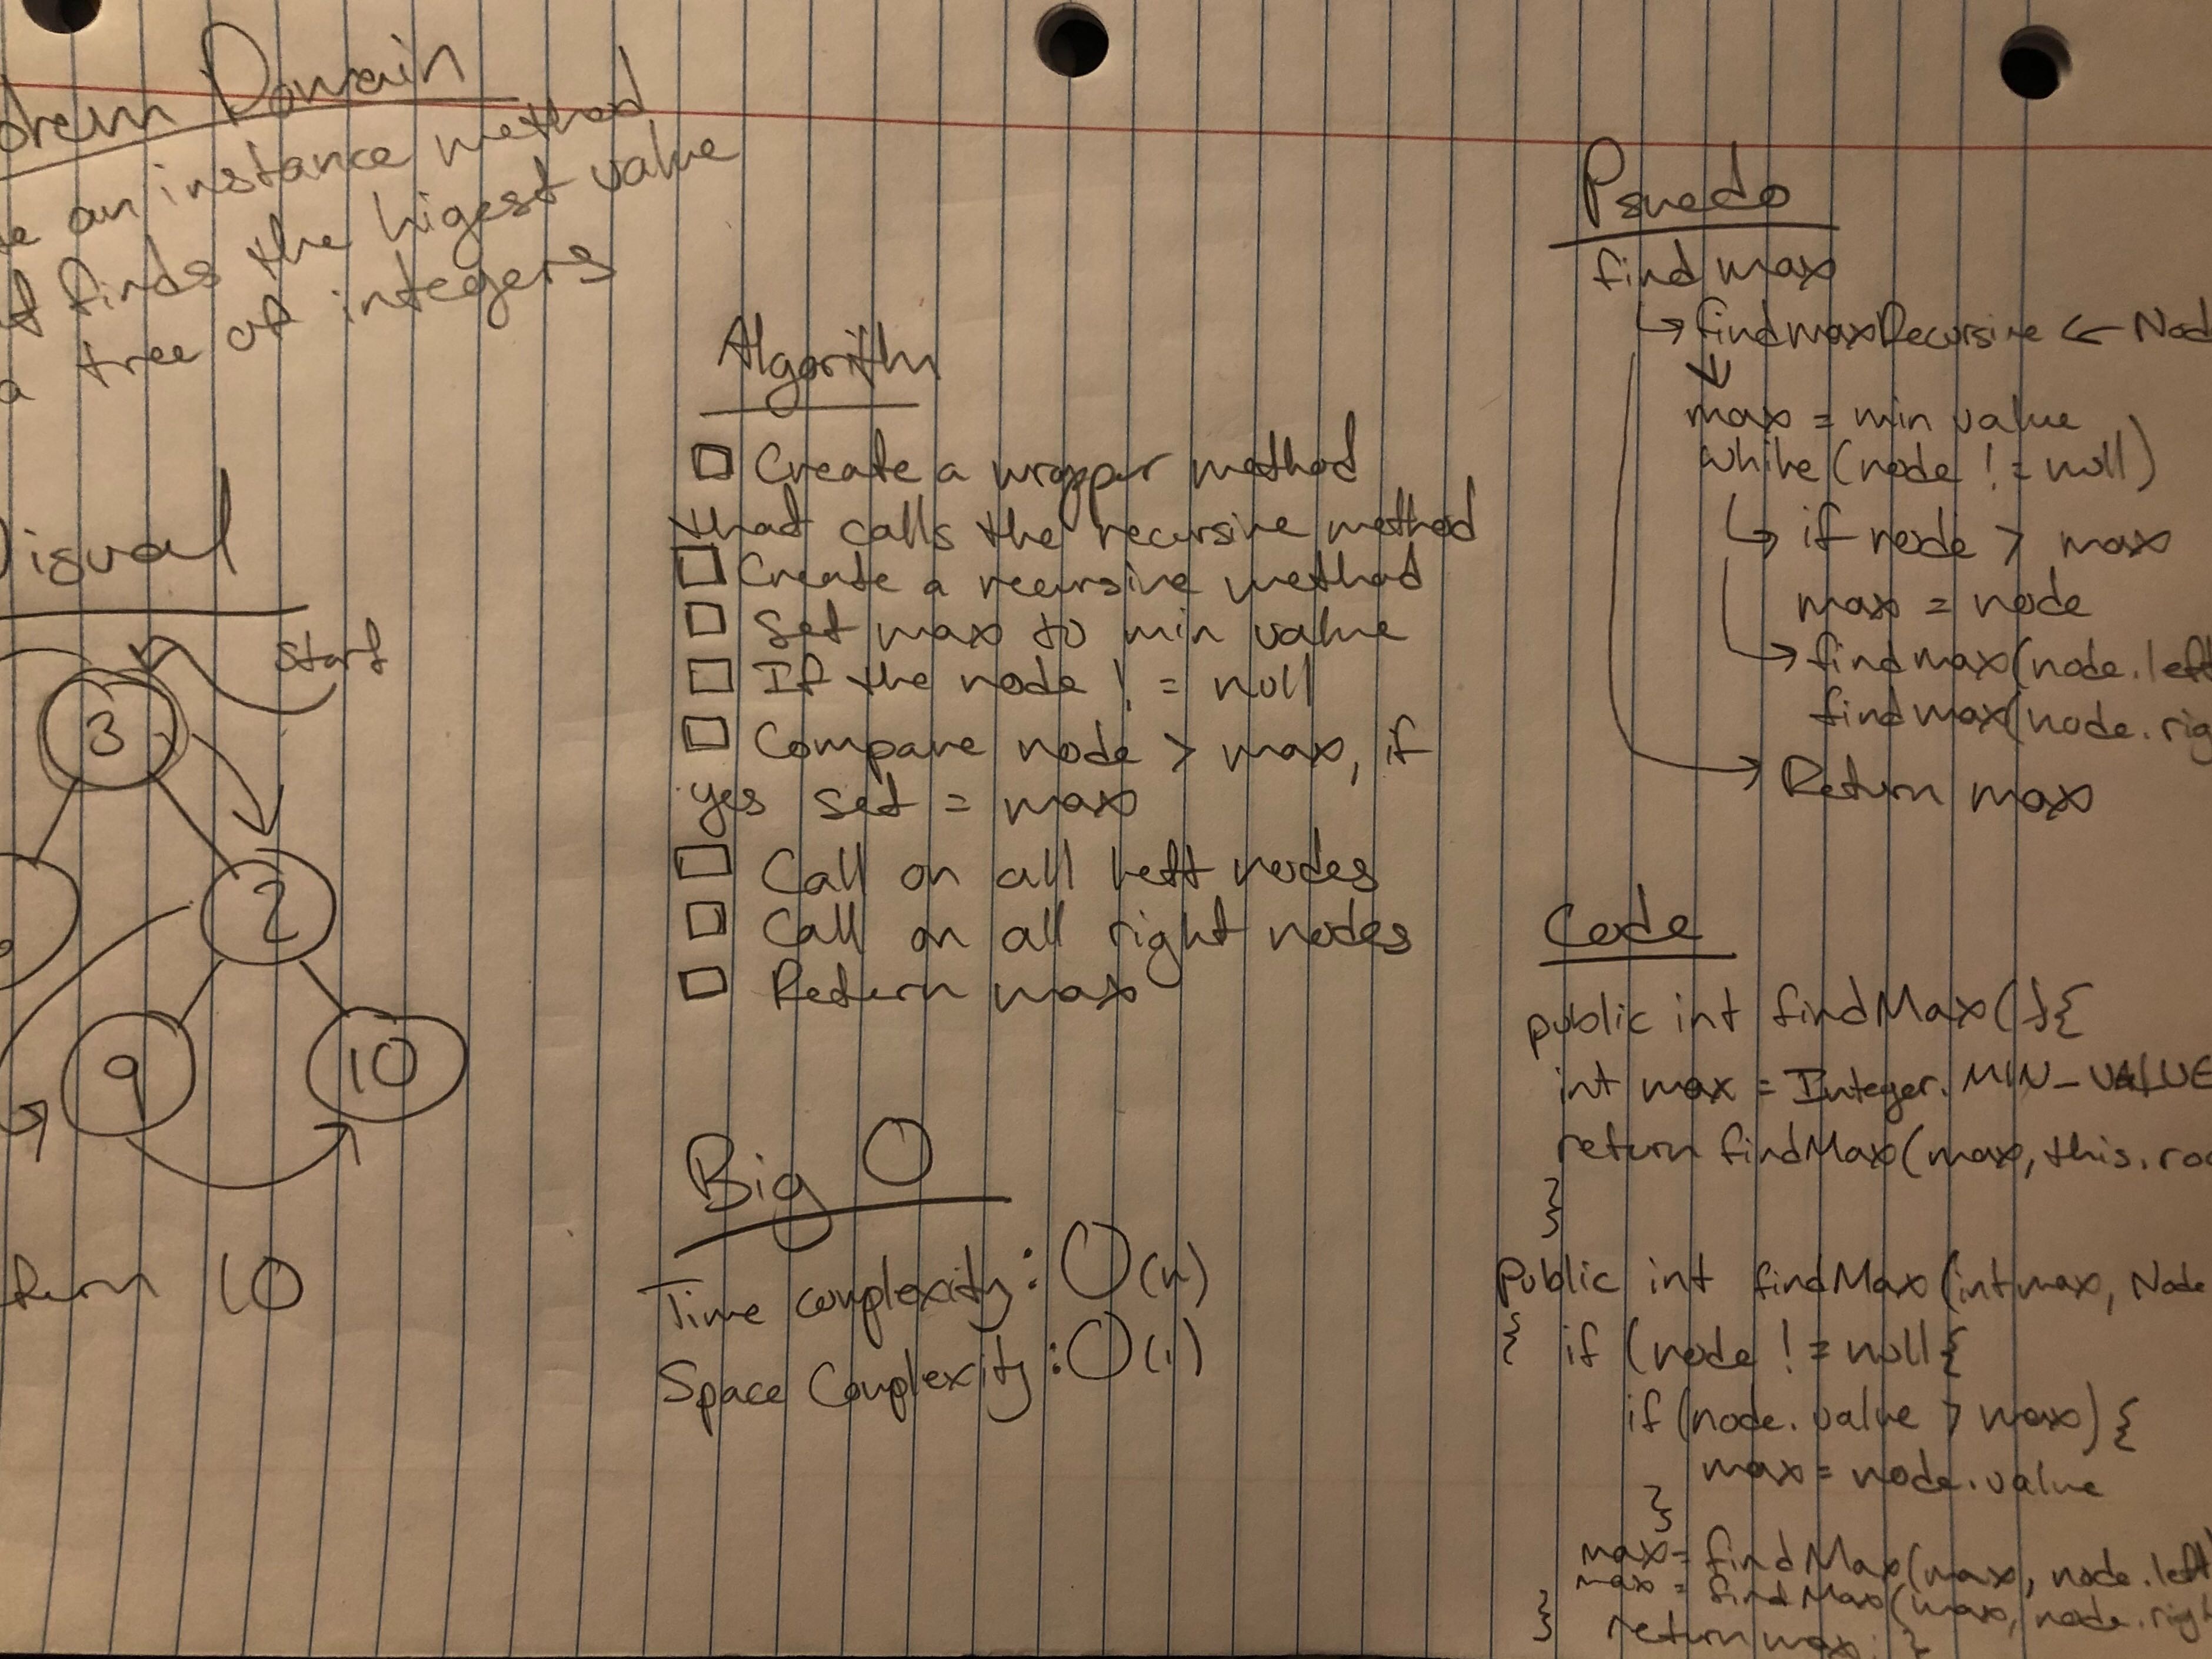 Domain
an instance method
finds the higest value
a tree of integers
Visual
start
3
2
9
10
10
Algorithm
Create a wrapper method
that calls the recursive method
Create a recursive method
Set max to min value
If the node != null
Compare node > max, if
yes set = max
Call on all left nodes
Call on all right nodes
Return max
Big O
Time complexity: O(n)
Space Complexity: O(1)
Psuedo
find max
findmaxRecursive ← Nod
max = min value
while (node != null)
if node > max
max = node
findmax(node.left
findmax(node.rig
Return max
Code
public int findMax(){
int max = Integer.MIN_VALUE
return findMax(max, this.roo
}
Public int findMax(int max, Node
{ if (node != null{
if (node.value > max) {
max = node.value
}
max = findMax(max, node.left)
max = findMax(max, node.righ
} return max; }